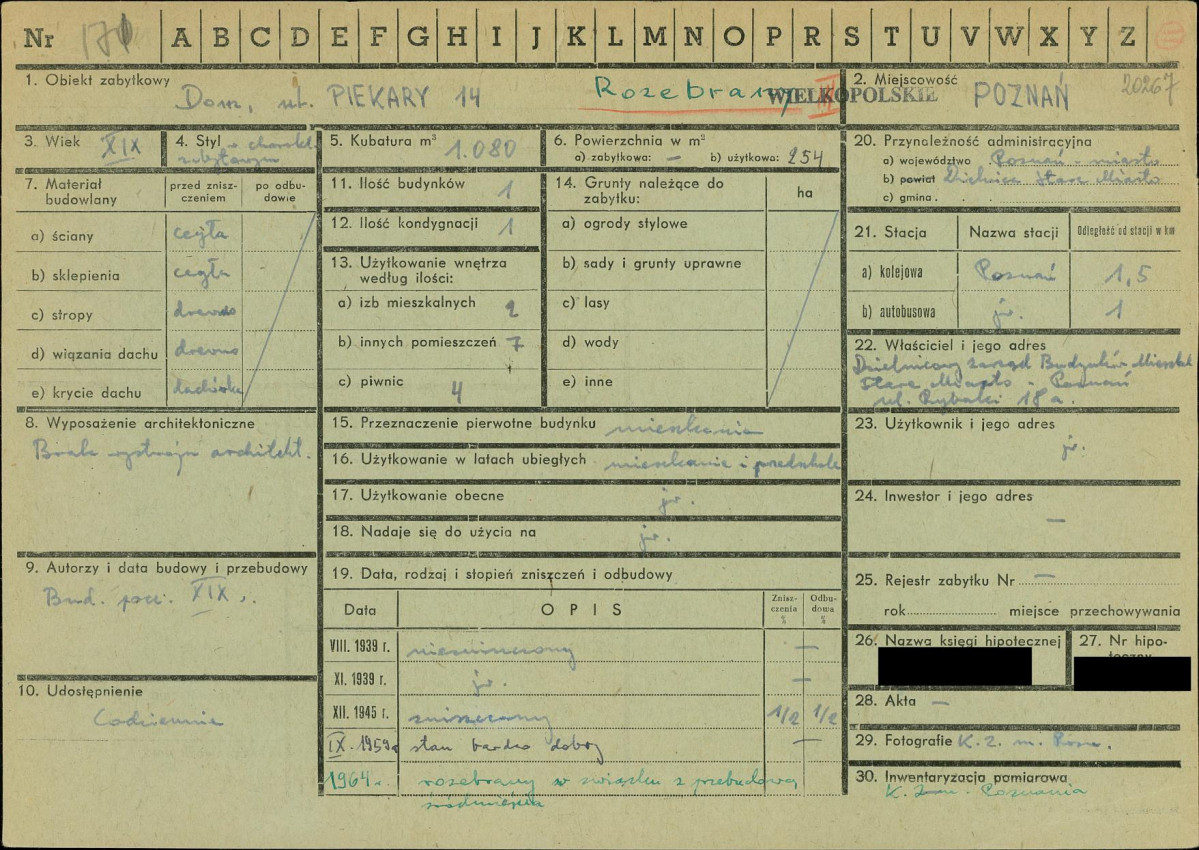 Nr 171 A B C D E F G H I J K L M N O P R S T U V W X Y Z
1. Obiekt zabytkowy
Dom, ul. PIEKARY 14
Rozebrany III
WIELKOPOLSKIE
2. Miejscowość
POZNAŃ
20267
3. Wiek XIX
4. Styl
5. Kubatura m³ 1.080
6. Powierzchnia w m²
a) zabytkowa: — b) użytkowa: 254
7. Materiał budowlany
przed znisz-
czeniem
po odbu-
dowie
a) ściany cegła
b) sklepienia cegła
c) stropy drewno
d) wiązania dachu drewno
e) krycie dachu dachówka
8. Wyposażenie architektoniczne
Brak wystroju architekt.
9. Autorzy i data budowy i przebudowy
Bud. pocz. XIX w.
10. Udostępnienie
Codziennie
11. Ilość budynków 1
12. Ilość kondygnacji 1
13. Użytkowanie wnętrza
według ilości:
a) izb mieszkalnych 2
b) innych pomieszczeń 7
c) piwnic 4
14. Grunty należące do
zabytku:
ha
a) ogrody stylowe
b) sady i grunty uprawne
c) lasy
d) wody
e) inne
15. Przeznaczenie pierwotne budynku mieszkanie
16. Użytkowanie w latach ubiegłych mieszkanie i przedszkole
17. Użytkowanie obecne jw.
18. Nadaje się do użycia na jw.
19. Data, rodzaj i stopień zniszczeń i odbudowy
Data OPIS
Znisz-
czenia
%
Odbu-
dowa
%
VIII. 1939 r. niezniszczony —
XI. 1939 r. jw. —
XII. 1945 r. zniszczony 1/2 1/2
IX. 1959 r. stan bardzo dobry —
1964 r. rozebrany w związku z przebudową
śródmieścia
20. Przynależność administracyjna
a) województwo Poznań - miasto
b) powiat Dzielnica Stare Miasto
c) gmina
21. Stacja Nazwa stacji Odległość od stacji w km
a) kolejowa Poznań 1,5
b) autobusowa jw. 1
22. Właściciel i jego adres
Dzielnicowy Zarząd Budynków Mieszkal.
Stare Miasto - Poznań
ul. Rybaki 18 a.
23. Użytkownik i jego adres
jw.
24. Inwestor i jego adres
—
25. Rejestr zabytku Nr —
rok miejsce przechowywania
26. Nazwa księgi hipotecznej
27. Nr hipo-
teczny
28. Akta —
29. Fotografie K. Z. m. Pozn.
30. Inwentaryzacja pomiarowa
K. Z. m. Poznania